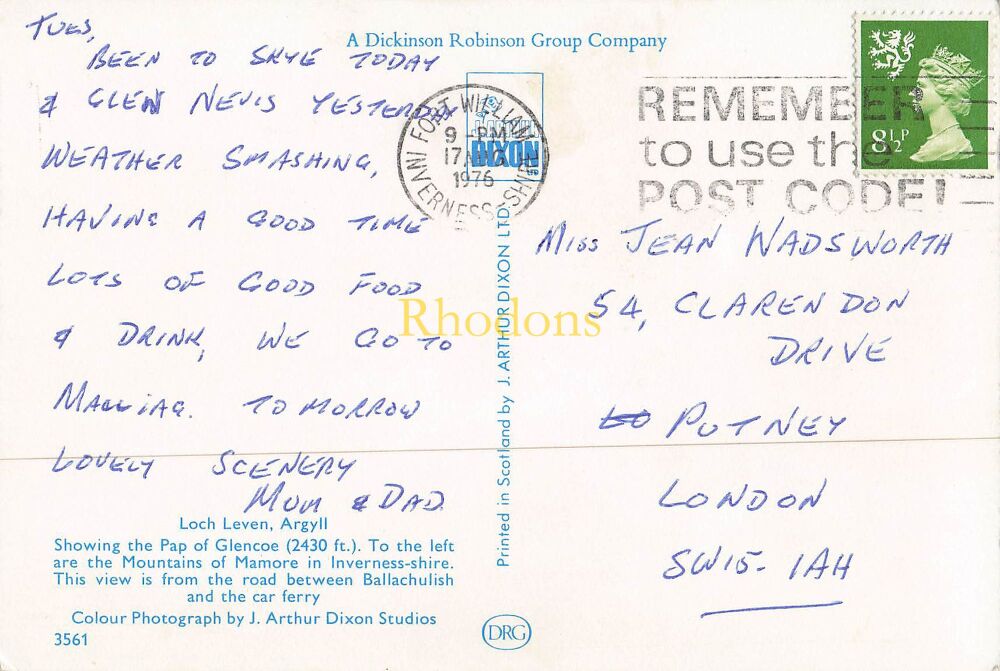 TUES,
BEEN TO SKYE TODAY
& GLEN NEVIS YESTERDAY
WEATHER SMASHING,
HAVING A GOOD TIME
LOTS OF GOOD FOOD
& DRINK, WE GO TO
MALLIAG. TOMORROW
LOVELY SCENERY
MUM & DAD
Loch Leven, Argyll
Showing the Pap of Glencoe (2430 ft.). To the left
are the Mountains of Mamore in Inverness-shire.
This view is from the road between Ballachulish
and the car ferry
Colour Photograph by J. Arthur Dixon Studios
3561
A Dickinson Robinson Group Company
DIXON
FORT WILLIAM
9 - PM
17
1976
INVERNESS-SHIRE
Printed in Scotland by J. ARTHUR DIXON LTD.
DRG
REMEMBER
to use the
POST CODE!
8½P
MISS JEAN WADSWORTH
54, CLARENDON
DRIVE
PUTNEY
LONDON
SW15- 1AH
Rhodons